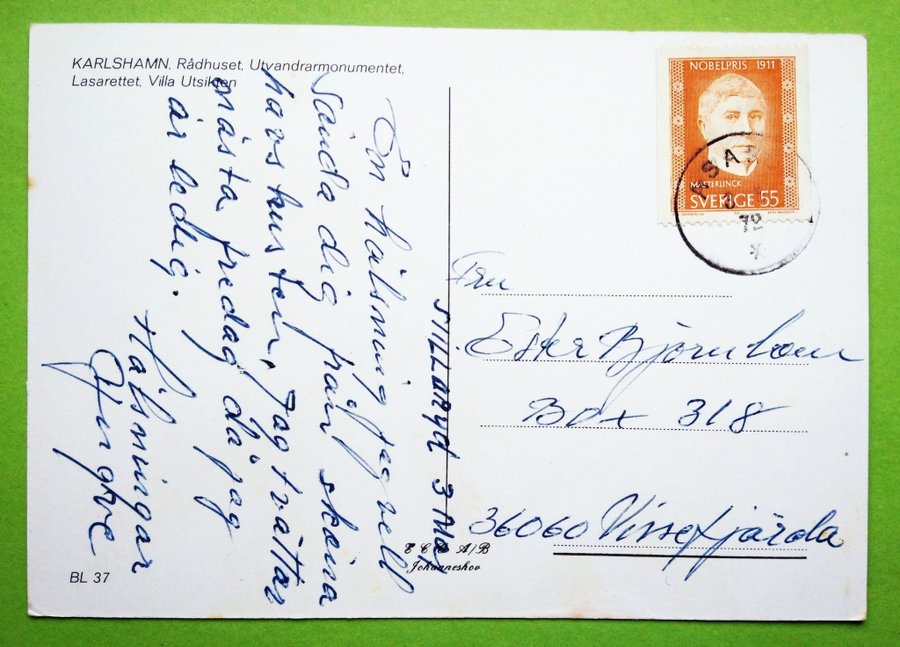 KARLSHAMN, Rådhuset, Utvandrarmonumentet,
Lasarettet, Villa Utsikten
SILLARYD 3 Maj
En hälsning jag vell
sända dig från sköna
havs kusten, Jag tvättar
nästa fredag då jag
är ledig. Hälsningar
Yngve
NOBELPRIS 1911
MAETERLINCK
SVERIGE 55
72
Fru
Ester Björnbom
Box 318
36060 Vissefjärda
E C O A/B
Johanneshov
BL 37